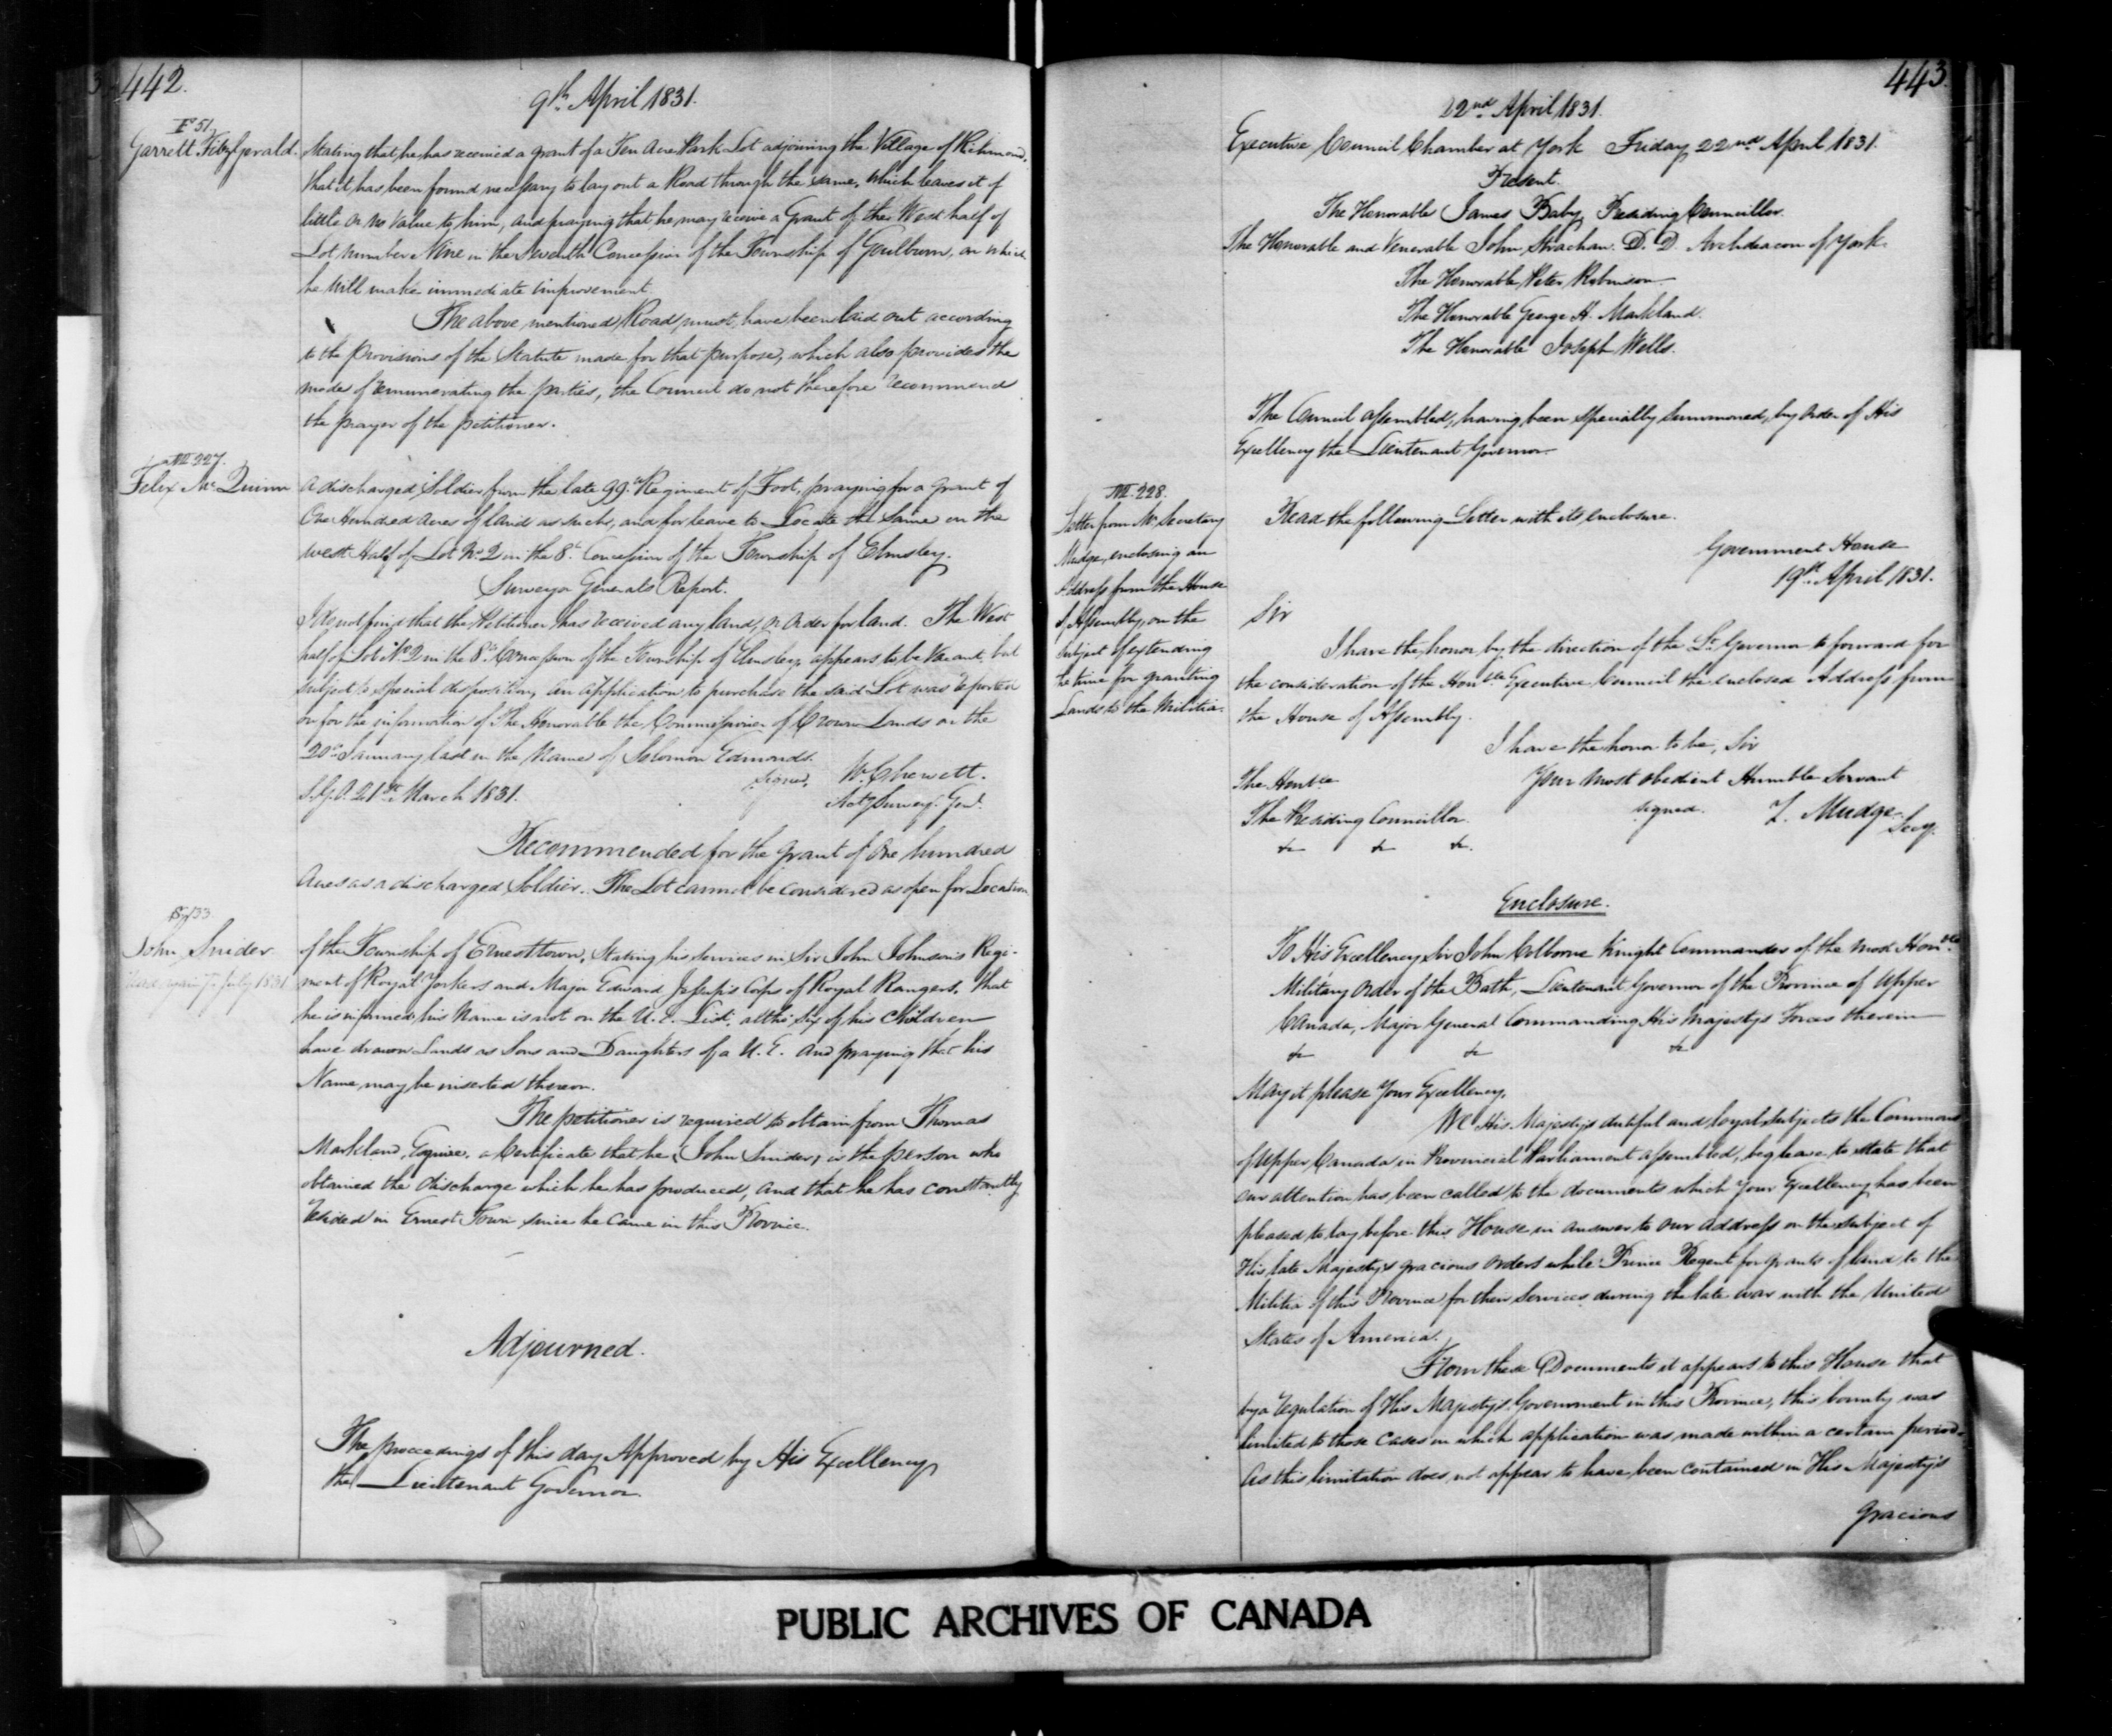 442.
9th April 1831.
F 51.
Garrett FitzGerald.
Stating that he has received a grant of a Ten Acre Park Lot adjoining the Village of Richmond,
that it has been found necessary to lay out a Road through the same, which leaves it of
little or no value to him, and praying that he may receive a Grant of the West half of
Lot number Nine in the Seventh Concession of the Township of Goulburn, on which
he will make immediate improvement.
The above mentioned Road must have been laid out according
to the provisions of the Statute made for that purpose, which also provides the
mode of remunerating the parties, the Council do not therefore recommend
the prayer of the petitioner.
M 227.
Felix Mc Quinn
A discharged Soldier from the late 99th Regiment of Foot, praying for a grant of
One Hundred acres of land as such, and for leave to Locate the same on the
West Half of Lot No 2 in the 8th Concession of the Township of Elmsley.
Surveyor Generals Report.
I do not find that the Petitioner has received any land, or order for land. The West
half of Lot No 2 in the 8th Concession of the Township of Elmsley appears to be vacant, but
subject to special disposition, an application to purchase the said Lot was reported
on for the information of The Honorable the Commissioner of Crown Lands on the
20th January last in the name of Solomon Edmonds.
signed, W. Chewett.
S.G.O. 21st March 1831. Actg Survey. Genl.
Recommended for the grant of One hundred
Acres as a discharged Soldier. The Lot cannot be considered as open for Location
133
John Snider
Read again 7 July 1831
of the Township of Ernesttown, Stating his services in Sir John Johnson's Regi-
ment of Royal Yorkers and Major Edward Jessup's Corps of Royal Rangers. That
he is informed his Name is not on the U.E. List, altho' six of his Children
have drawn Lands as Sons and Daughters of a U.E. And praying that his
Name may be inserted thereon.
The petitioner is required to obtain from Thomas
Markland, Esquire, a Certificate that he (John Snider) is the person who
obtained the discharge which he has produced, and that he has constantly
resided in Ernest Town since he came in this Province.
Adjourned.
The proceedings of this day Approved by His Excellency
the Lieutenant Governor.
443.
22nd April 1831.
Executive Council Chamber at York Friday 22nd April 1831.
Present.
The Honorable James Baby, Presiding Councillor.
The Honorable and Venerable John Strachan. D.D. Archdeacon of York.
The Honorable Peter Robinson
The Honorable George H. Markland.
The Honorable Joseph Wells.
The Council assembled, having been specially summoned, by order of His
Excellency the Lieutenant Governor.
M. 228.
Letter from Mr Secretary
Mudge, enclosing an
Address from the House
of Assembly, on the
subject of extending
the time for granting
Lands to the Militia.
Read the following Letter with its enclosure.
Government House
19th April 1831.
Sir
I have the honor by the direction of the Lt Governor to forward for
the consideration of the Honble Executive Council the enclosed Address from
the House of Assembly.
I have the honor to be, Sir
The Honble Your most obedient Humble Servant
The Presiding Councillor. signed. Z. Mudge. Secy.
&c &c &c.
Enclosure.
To His Excellency Sir John Colborne Knight Commander of the most Honble
Military Order of the Bath, Lieutenant Governor of the Province of Upper
Canada, Major General Commanding His Majesty's Forces therein
&c &c &c
May it please Your Excellency,
We His Majesty's dutiful and loyal subjects the Commons
of Upper Canada in Provincial Parliament assembled, beg leave to state that
our attention has been called to the documents which Your Excellency has been
pleased to lay before this House in answer to our address on the subject of
His late Majesty's gracious orders while Prince Regent for grants of land to the
Militia of this Province for their Services during the late war with the United
States of America.
From these Documents it appears to this House that
by a regulation of His Majesty's Government in this Province, this bounty was
limited to those cases in which application was made within a certain period.
As this limitation does not appear to have been contained in His Majesty's
Gracious
PUBLIC ARCHIVES OF CANADA